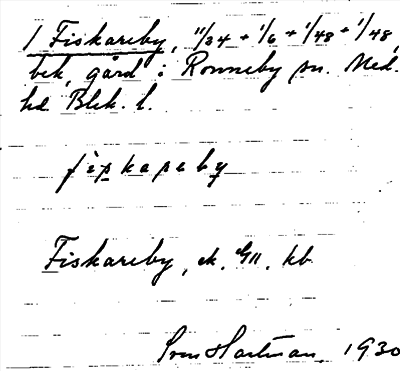 1 Fiskareby, 11/24 + 1/6 + 1/48 + 1/48
bek, gård i Ronneby sn. Med.
hd Blek. l.
fiskareby
Fiskareby, ek. GII. kb
Sven Hartman. 1930